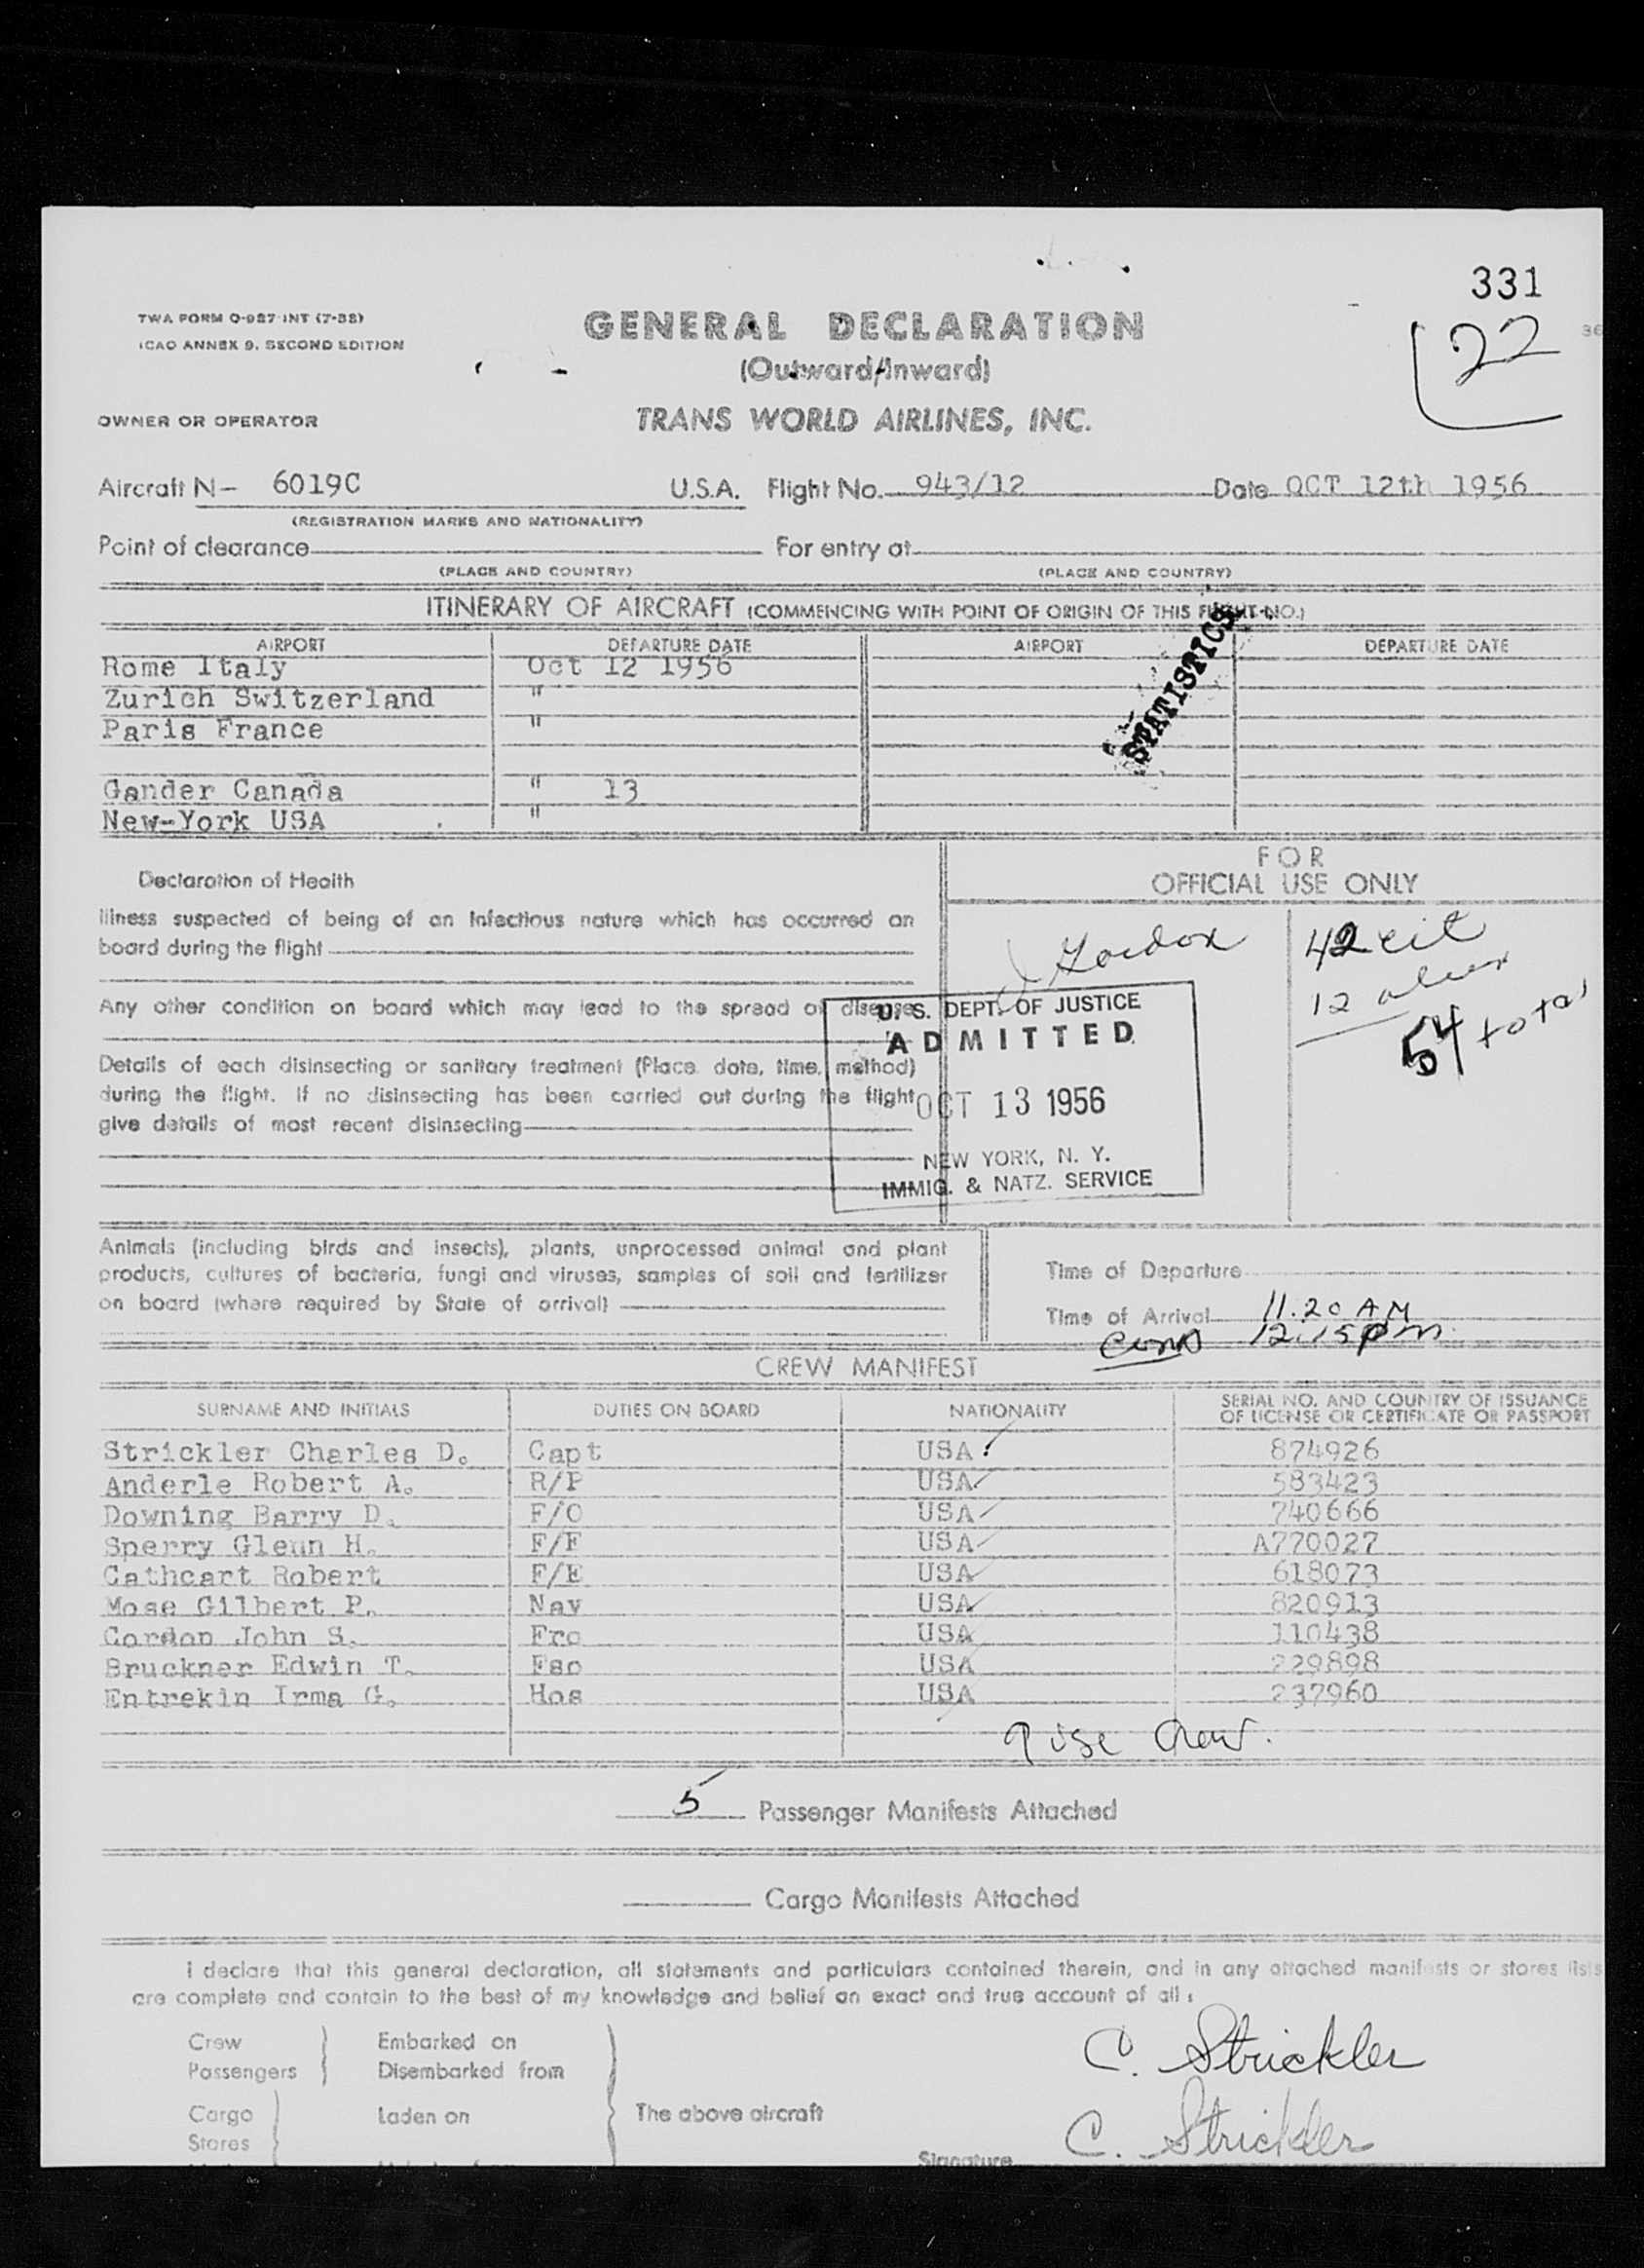 331
TWA FORM O-987-INT (7-55)
ICAO ANNEX 9, SECOND EDITION
GENERAL DECLARATION
22
(Outward/Inward)
OWNER OR OPERATOR
TRANS WORLD AIRLINES, INC.
Aircraft N- 6019C U.S.A. Flight No. 943/12 Date OCT 12th 1956
(REGISTRATION MARKS AND NATIONALITY)
Point of clearance For entry at
(PLACE AND COUNTRY) (PLACE AND COUNTRY)
ITINERARY OF AIRCRAFT (COMMENCING WITH POINT OF ORIGIN OF THIS FLIGHT NO.)
AIRPORT DEPARTURE DATE AIRPORT DEPARTURE DATE
Rome Italy Oct 12 1956
Zurich Switzerland "
Paris France "
STATISTICS
Gander Canada " 13
New-York USA "
FOR
OFFICIAL USE ONLY
Declaration of Health
Illness suspected of being of an infectious nature which has occurred on
board during the flight
42 cit
12 alien
54 total
Any other condition on board which may lead to the spread of disease
Details of each disinsecting or sanitary treatment (Place, date, time, method)
during the flight. If no disinsecting has been carried out during the flight
give details of most recent disinsecting
U. S. DEPT. OF JUSTICE
ADMITTED
OCT 13 1956
NEW YORK, N. Y.
IMMIG. & NATZ. SERVICE
Animals (including birds and insects), plants, unprocessed animal and plant
products, cultures of bacteria, fungi and viruses, samples of soil and fertilizer
on board (where required by State of arrival)
Time of Departure
Time of Arrival 11.20 AM
12.15pm
CREW MANIFEST
SURNAME AND INITIALS DUTIES ON BOARD NATIONALITY SERIAL NO. AND COUNTRY OF ISSUANCE
OF LICENSE OR CERTIFICATE OR PASSPORT
Strickler Charles D. Capt USA 874926
Anderle Robert A. R/P USA 583423
Downing Barry D. F/O USA 740666
Sperry Glenn H. F/E USA A770027
Cathcart Robert F/E USA 618073
Mose Gilbert P. Nav USA 820913
Gordon John S. Fro USA 110438
Bruckner Edwin T. Fso USA 229898
Entrekin Irma G. Hos USA 237960
Crew.
5 Passenger Manifests Attached
Cargo Manifests Attached
I declare that this general declaration, all statements and particulars contained therein, and in any attached manifests or stores lists
are complete and contain to the best of my knowledge and belief an exact and true account of all:
Crew Embarked on
Passengers Disembarked from
C. Strickler
Cargo Laden on The above aircraft
Stores
C. Strickler
Signature